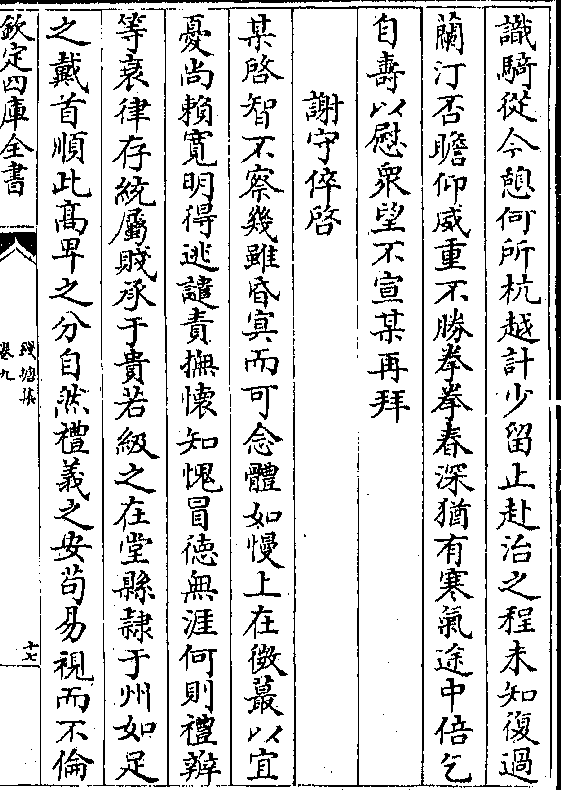 識騎從今憩何所杭越計少留止赴治之程未知復過
蘭汀否瞻仰威重不勝拳拳春深猶有寒氣途中倍乞
自壽以慰衆望不宣某再拜
謝守倅啓
某啓智不察幾雖昏寘而可念體如慢上在徴蕞以宜
憂尚賴寛明得逃譴責撫懐知愧冒徳無涯何則禮辨
等衰律存統屬賤承于貴若級之在堂縣隷于州如足
之戴首順此髙卑之分自然禮義之安茍易視而不倫
欽定四庫全書
錢塘集
卷九
十七